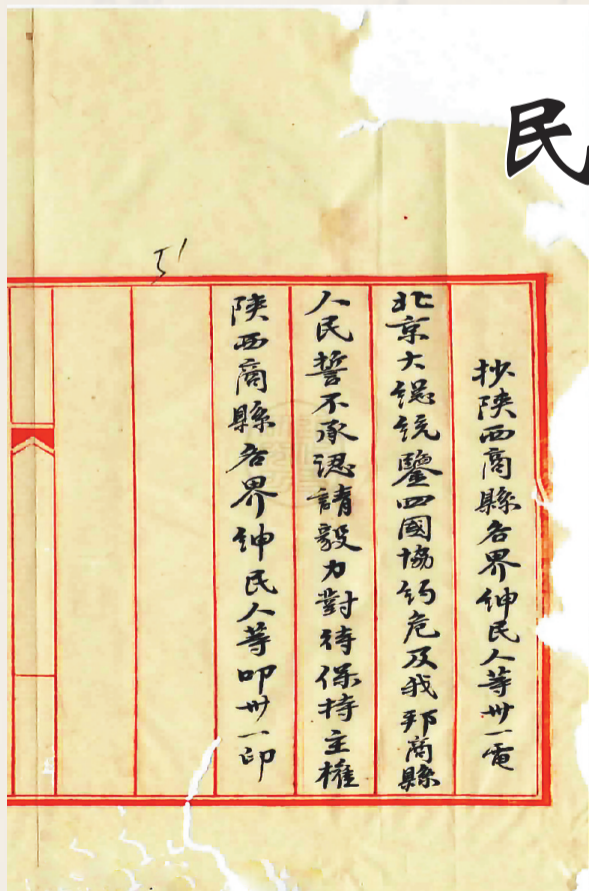 民
抄陝西商縣各界紳民人等卅一電
北京大總統鑒四國協約危及我邦商縣
人民誓不承認請毅力對待保持主權
陝西商縣各界紳民人等叩卅一印